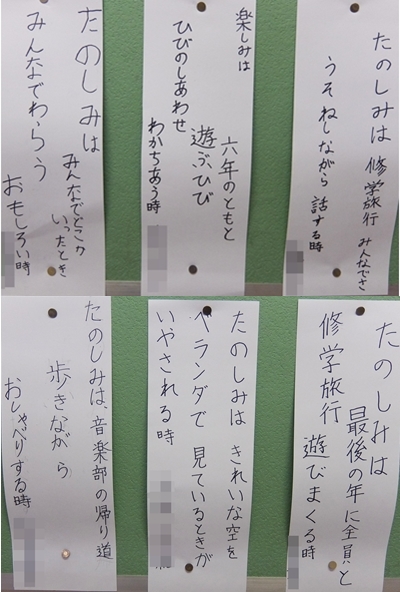 たのしみは
みんなでどこか
いったとき
みんなでわらう
おもしろい時
楽しみは
六年のともと
遊ぶひび
ひびのしあわせ
わかちあう時
たのしみは 修学旅行 みんなでさ
うそねしながら 話する時
たのしみは、音楽部の帰り道
歩きながら
おしゃべりする時
たのしみは きれいな空を
ベランダで 見ているときが
いやされる時
たのしみは
最後の年に全員と
修学旅行
遊びまくる時